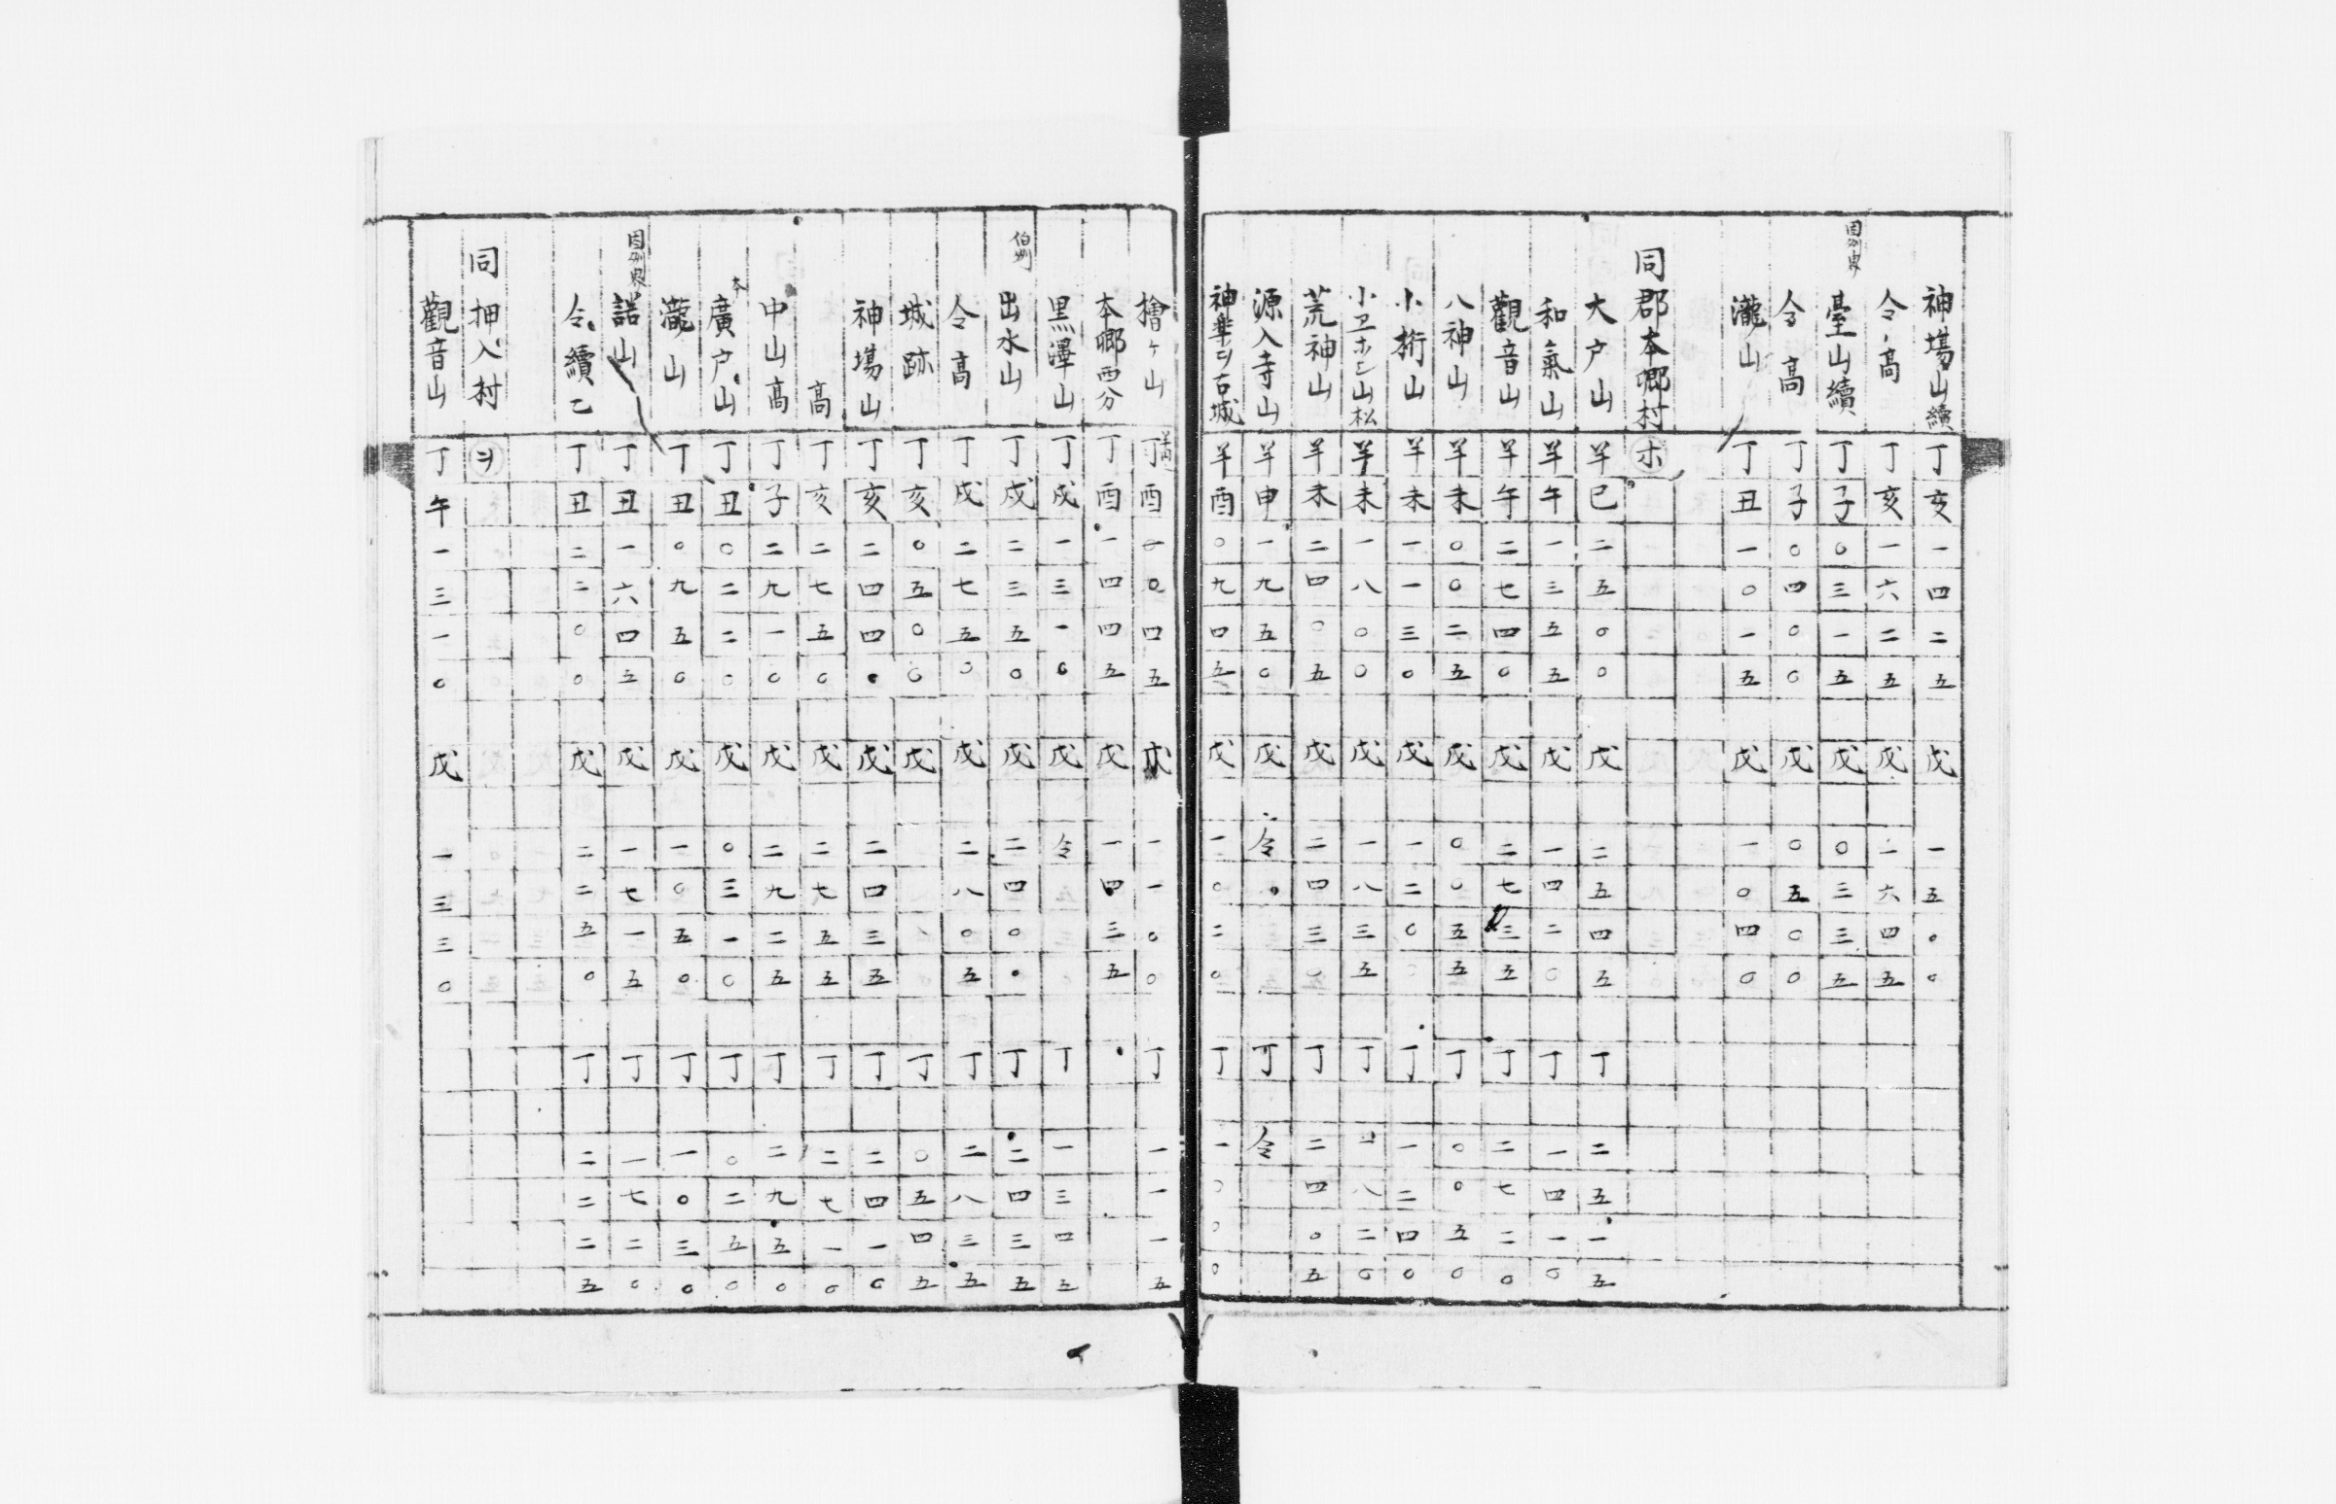 神塲山續 丁亥一四二五 戊 一五〇〇
仝高 丁亥一六二五 戊 一六四五
因州界 臺山續 丁子〇三一五 戊 〇三三五
仝高 丁子〇四〇〇 戊 〇五〇〇
瀧山 丁丑一〇一五 戊 一〇四〇
同郡本郷村 ホ
大户山 羊巳二五〇〇 戊 二五四五 丁 二五一五
和氣山 羊午一三五五 戊 一四二〇 丁 一四一〇
觀音山 羊午二七四〇 戊 二七三五 丁 二七二〇
八神山 羊未〇〇二五 戊 〇〇五五 丁 〇〇五〇
小桁山 羊未一一三〇 戊 一二〇 丁 一二四〇
山松 羊未一八〇〇 戊 一八三五 丁 八二〇
荒神山 羊未二四〇五 戊 二四三〇 丁 二四〇五
源入寺山 羊申一九五〇 戊 仝 丁 仝
神楽 古城 羊酉〇九四五 戊 一〇二〇 丁 一〇〇〇
檜ヶ山 丁酉 〇四五 戊 一一〇〇 丁 一一一五
本郷西分 丁酉一四四五 戊 一四三五
黒澤山 丁戌一三一〇 戊 仝 丁 一三四五
伯州 出水山 丁戌二三五〇 戊 二四〇〇 丁 二四三五
仝高 丁戌二七五〇 戊 二八〇五 丁 二八三五
城跡 丁亥〇五〇〇 戊 丁 〇五四五
神塲山 丁亥二四四〇 戊 二四三五 丁 二四一〇
高 丁亥二七五〇 戊 二七五五 丁 二七一〇
中山高 丁子二九一〇 戊 二九二五 丁 二九五〇
本 廣户山 丁丑〇二二〇 戊 〇三一〇 丁 〇二五〇
瀧山 丁丑〇九五〇 戊 一〇五〇 丁 一〇三〇
因州界 諾山 丁丑一六四五 戊 一七一五 丁 一七二〇
仝續乙 丁丑二二〇〇 戊 二二五〇 丁 二二二五
同押入村 ヲ
觀音山 丁午一三一〇 戊 一三三〇